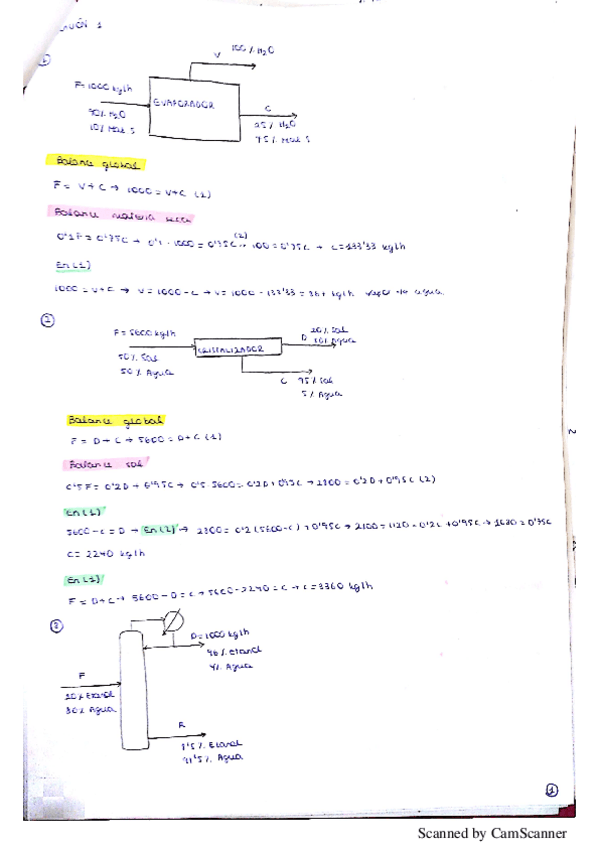 1
V 100% H₂O
F=1000 kg/h
EVAPORADOR
C
90% H₂O
10% Mat S
25% H₂O
75% Mat S
Balance global
F = V+C → 1000 = V+C (1)
Balance materia seca
0'1F = 0'75C → 0'1 · 1000 = 0'75C (2) → 100 = 0'75C → C=133'33 kg/h
En (1)
1000 = V+C → V = 1000-C → V = 1000 - 133'33 = 867 kg/h vapor de agua.
2
F = 5600 kg/h
20% Sal
D 80% Agua
CRISTALIZADOR
50% Sal
50% Agua
C 95% Sal
5% Agua
Balance global
F = D + C → 5600 = D+C (1)
Balance sal
0'5F = 0'2D + 0'95C → 0'5·5600 = 0'2D + 0'95C → 2800 = 0'2D + 0'95C (2)
En (1)
5600 - C = D → En (2) → 2800 = 0'2(5600-C) + 0'95C → 2800 = 1120 - 0'2C + 0'95C → 1680 = 0'75C
C = 2240 kg/h
En (1)
F = D+C → 5600 - D = C → 5600 - 2240 = C → C = 3360 kg/h
3
D=1000 kg/h
96% etanol
4% Agua
F
20% Etanol
80% Agua
R
Etanol
Agua
1
Scanned by CamScanner